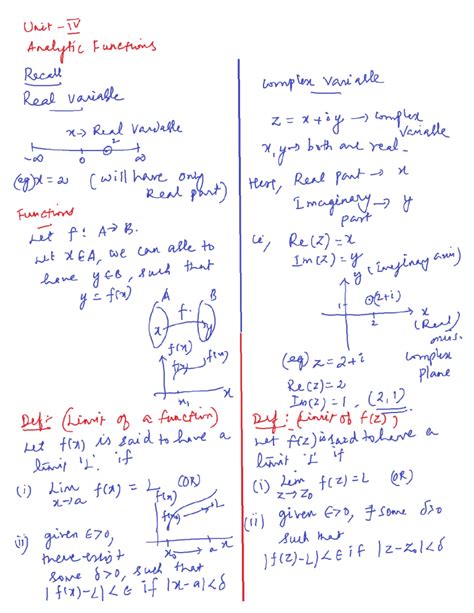 Unit - IV
Analytic Functions
Recall
Real Variable
x → Real Variable
2
-∞ 0 ∞
(eg) x = 2 (will have only
Real part)
Functions
Let f: A→B.
Let x∈A, we can able to
have y∈B, such that
y = f(x)
A B
f.
x y
f(x)
f(x)
f(x)
x₁ x
Def:- (Limit of a function)
Let f(x) is said to have a
limit 'L' if
(i) Lim f(x) = L (OR)
x→a
f(x)
f(x) →L
x₀ → a x
ii) given ϵ>0,
there exist
some δ>0, such that
|f(x)-L|<ϵ if |x-a|<δ
Complex Variable
z = x+iy → complex
Variable
x, y → both are real.
Here, Real part → x
Imaginary → y
part
ie, Re(z) = x
Im(z) = y
y (Imaginary axis)
1 ⊙(2+i)
2 x
(Real)
axis.
(eg) z = 2+i complex
plane
Re(z) = 2
Im(z) = 1, (2,1)
Def: (Limit of f(z))
Let f(z) is said to have a
limit 'L' if
(i) Lim f(z) = L (OR)
z→z₀
(ii) given ϵ>0, ∃ some δ>0
such that
|f(z)-L|<ϵ if |z-z₀|<δ